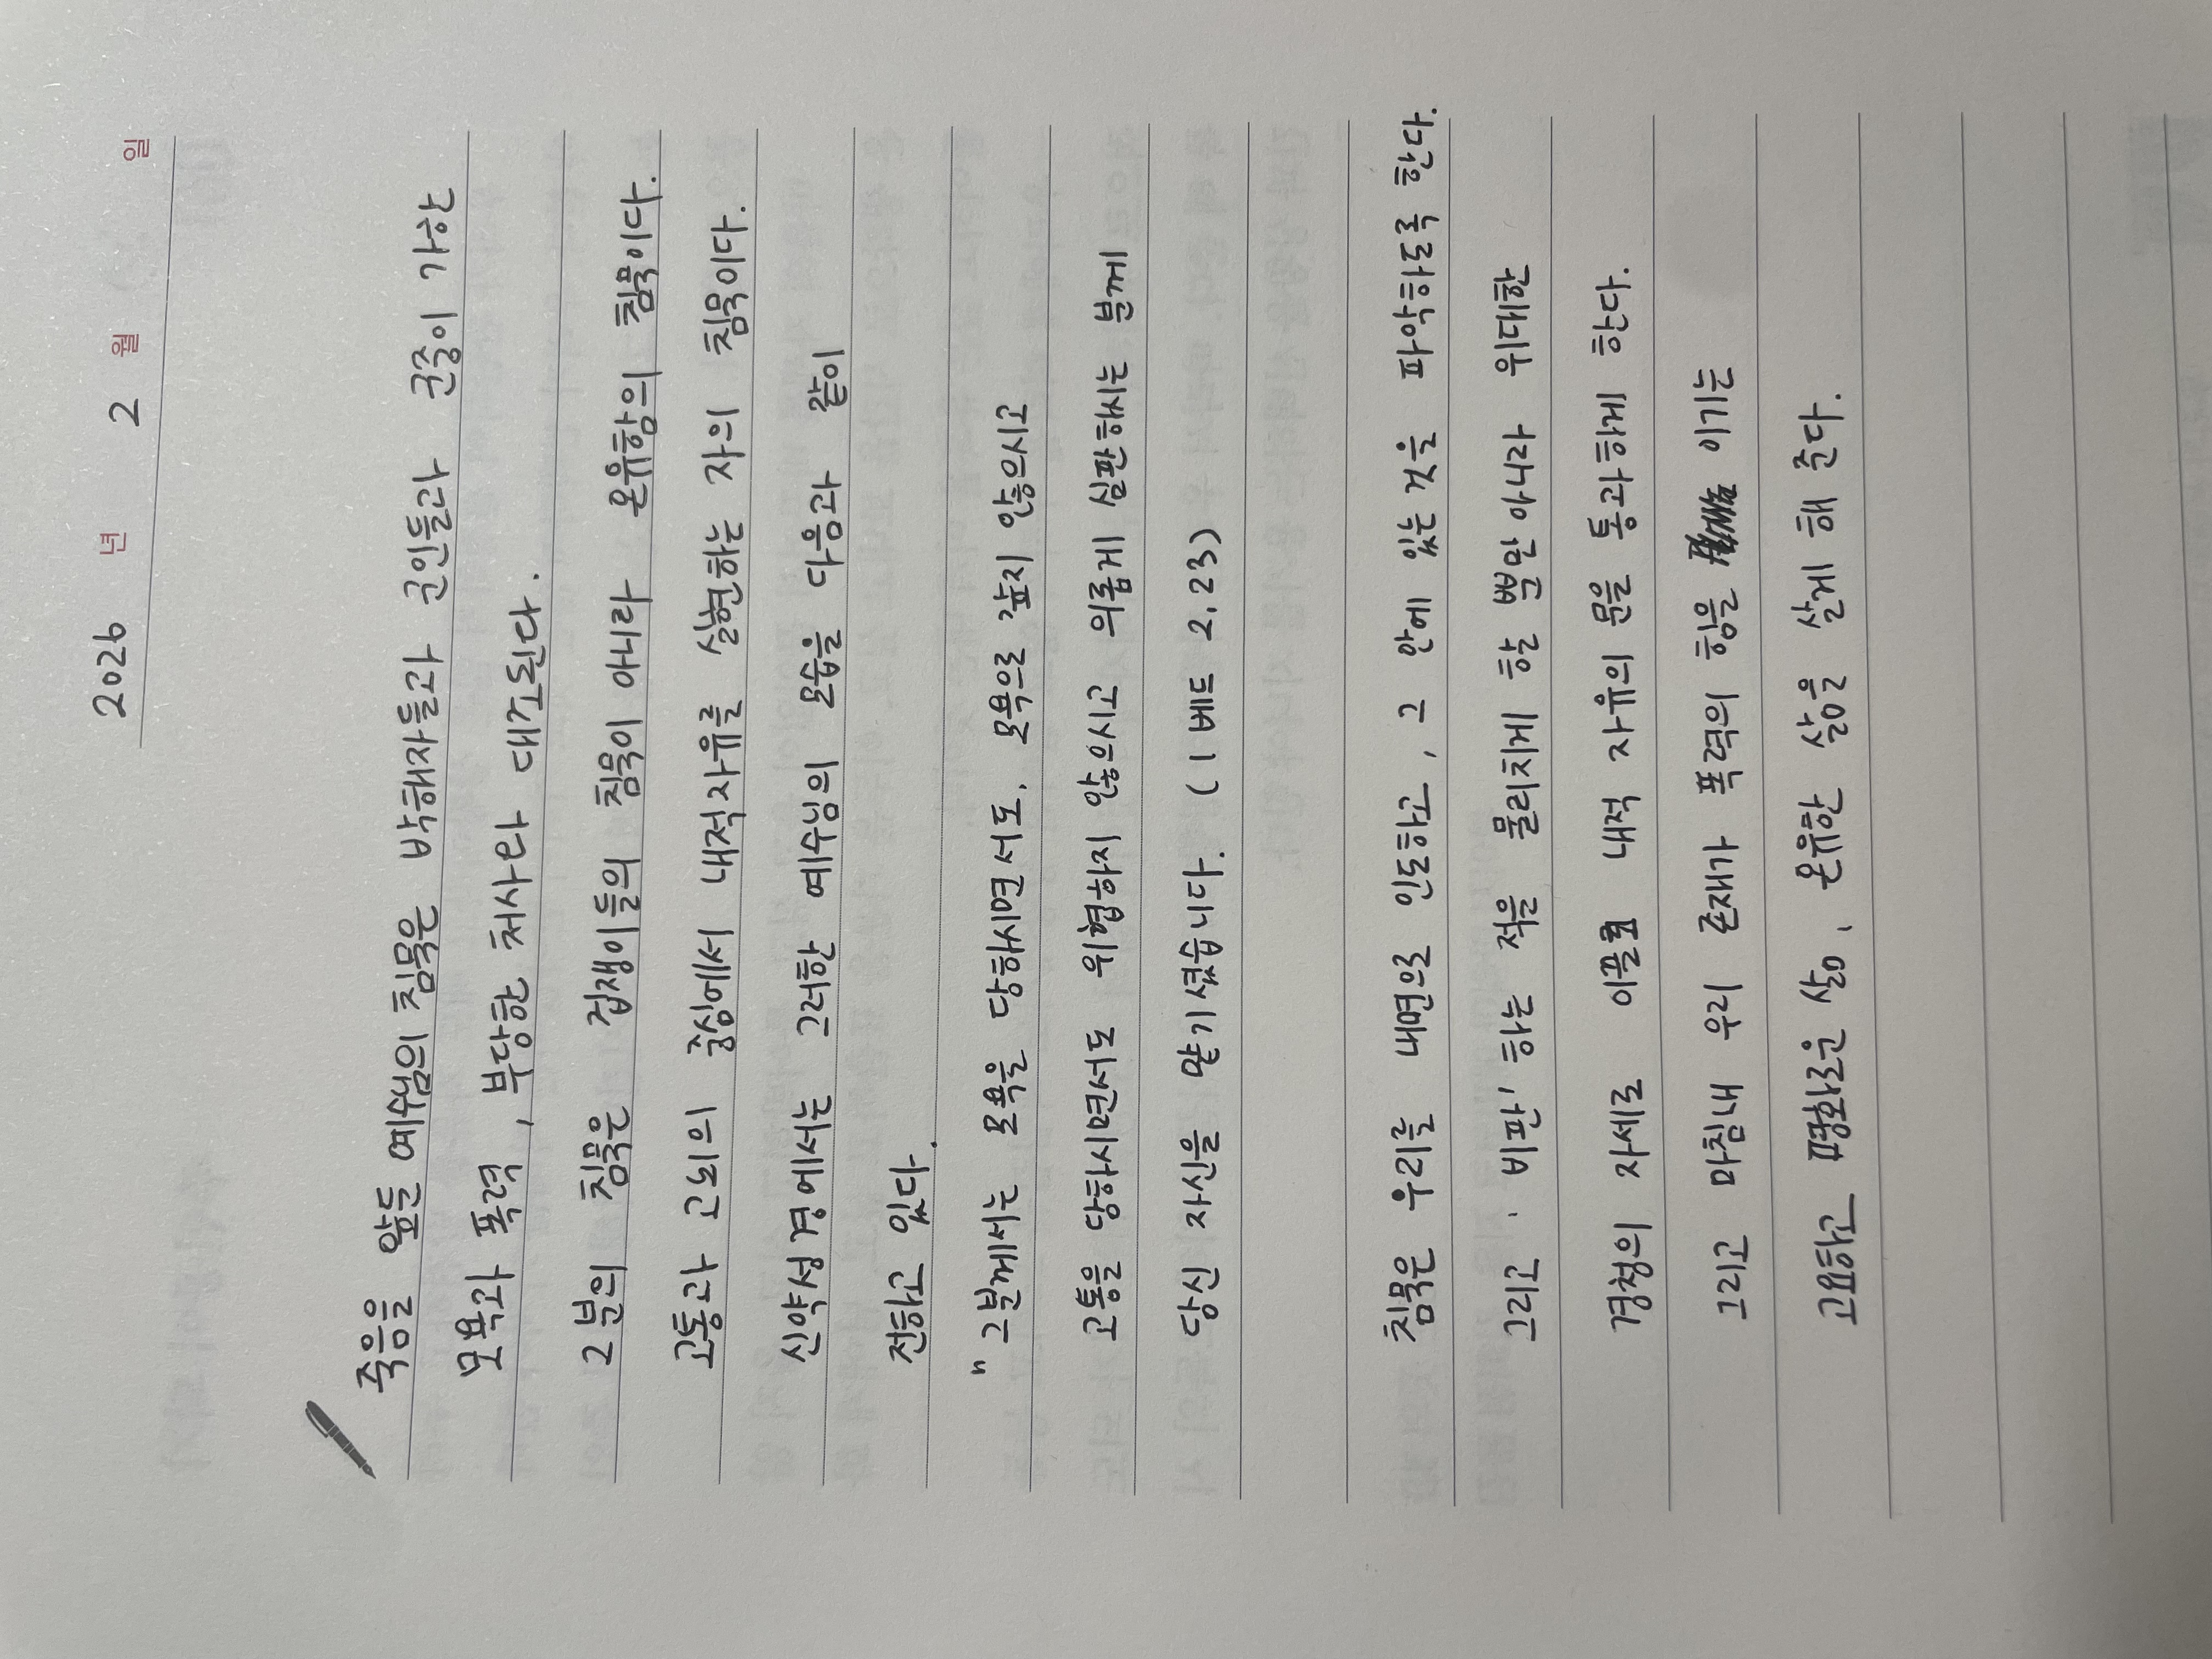 2026 년 2 월 일
죽음을 앞둔 예수님의 침묵은 박해자들과 군인들과 군중이 가한
모욕과 폭력, 부당한 처사와 대조된다.
그분의 침묵은 겁쟁이들의 침묵이 아니라 온유함의 침묵이다.
고통과 고뇌의 중심에서 내적자유를 실현하는 자의 침묵이다.
신약성경에서는 그러한 예수님의 모습을 다음과 같이
전하고 있다.
"그분께서는 모욕을 당하시면서도, 모욕으로 갚지 않으시고
고통을 당하시면서도 위협하지 않으시고 의롭게 심판하시는 분께
당신 자신을 맡기셨습니다. (1베드 2,23)
침묵은 우리를 내면으로 인도하고, 그 안에 있는 것을 파악하도록 한다.
그리고 '비판'하는 적을 물리치게 할 뿐만 아니라 위대한
경청의 자세로 이끌고 내적 자유의 문을 통과하게 한다.
그리고 마침내 우리 존재가 폭력의 힘을 이기는
고요하고 평화로운 삶, 온유한 삶을 살게 해 준다.